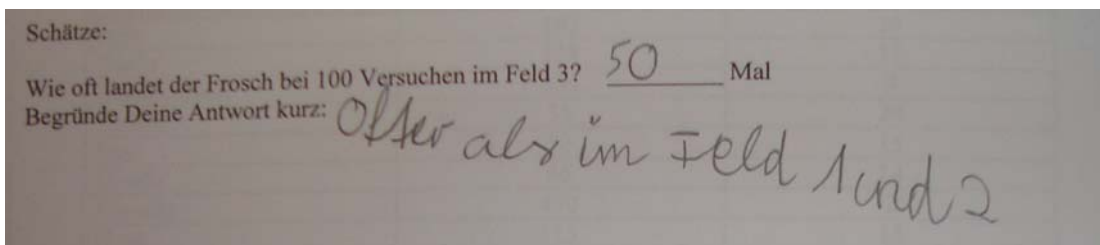 Schätze:
Wie oft landet der Frosch bei 100 Versuchen im Feld 3? 50 Mal
Begründe Deine Antwort kurz: Öfter als im Feld 1 und 2